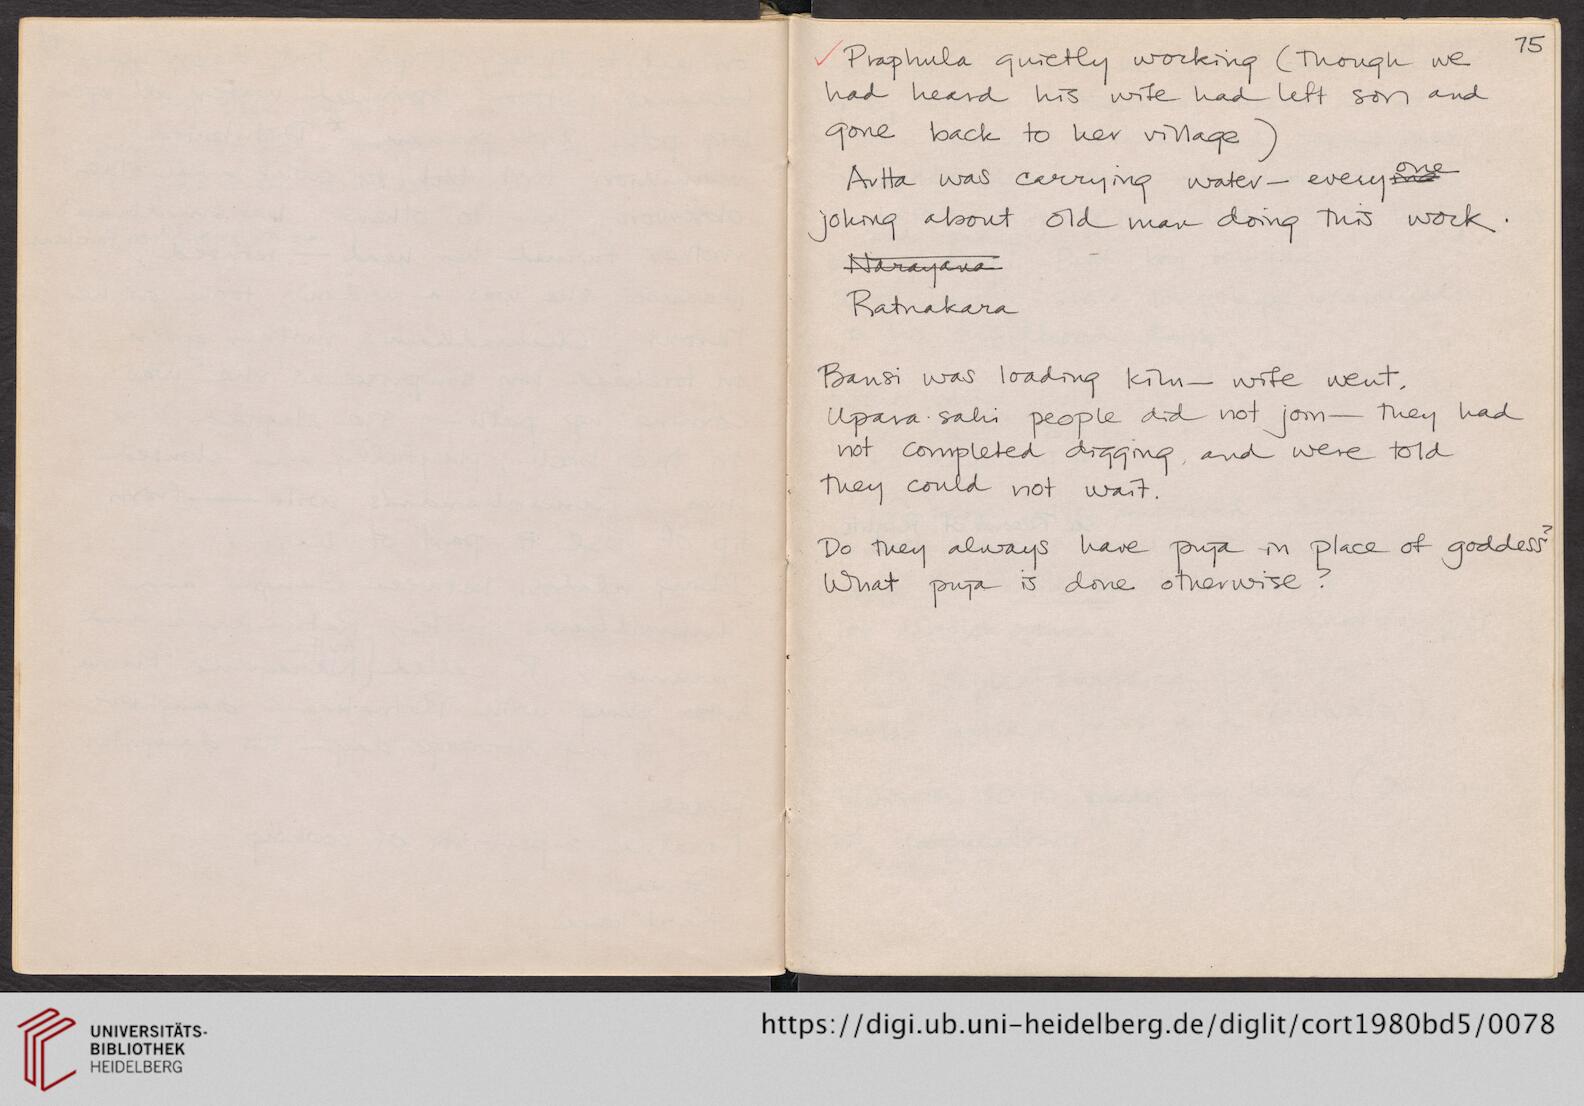 75
✓ Praphula quietly working (Though we
had heard his wife had left son and
gone back to her village)
Artta was carrying water — everyone
joking about old man doing this work.
Narayana
Ratnakara
Bansi was loading kiln — wife went.
Upara-sahi people did not join — they had
not completed digging, and were told
they could not wait.
Do they always have puja in place of goddess?
What puja is done otherwise?
UNIVERSITÄTS-
BIBLIOTHEK
HEIDELBERG
https://digi.ub.uni-heidelberg.de/diglit/cort1980bd5/0078